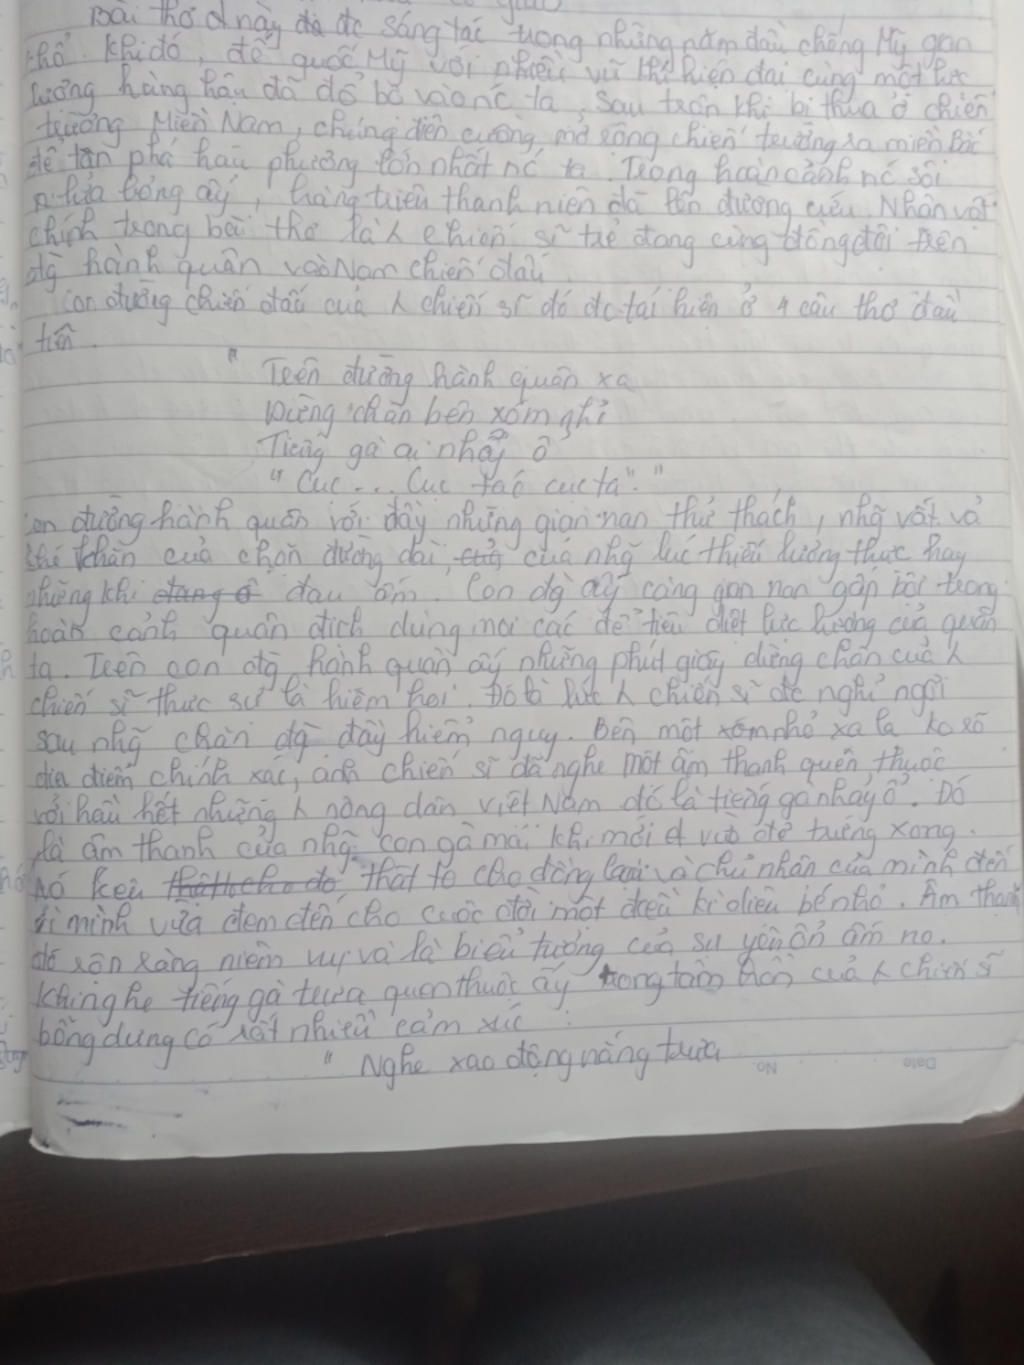 Bài thơ này đc sáng tác trong những năm đầu chống Mỹ gian
khổ. Khi đó, đế quốc Mỹ với nhiều vũ khí hiện đại cùng một lực
lưỡng hùng hậu đã đổ bộ vào nc ta. Sau trận khi bị thua ở chiến
trường Miền Nam, chúng điên cuồng mở rộng chiến trường ra miền Bắc
để tàn phá hậu phương lớn nhất nc ta. Trong hoàn cảnh nc sôi
lửa bỏng ấy, hàng triệu thanh niên đã lên đường cứu. Nhân vật
chính trong bài thơ là chiến sĩ trẻ đang cùng đồng đội trên
đg hành quân vào Nam chiến đấu
Con đường chiến đấu của chiến sĩ đó đc tái hiện ở 4 câu thơ đầu
tiên.
" Trên đường hành quân xa
Dừng chân bên xóm nhỏ
Tiếng gà ai nhảy ổ
" Cục... Cục tác cục ta"."
Con đường hành quân với đầy những gian nan thử thách, nhg vất vả
khó khăn của chặn đường dài, của nhg lúc thiếu lương thực hay
những khi đau ốm. Con đg ấy càng gian nan gấp bội trong
hoàn cảnh quân địch dùng mọi các để tiêu diệt lực lượng của quân
ta. Trên con đg hành quân ấy những phút giây dừng chân của
chiến sĩ thực sự là hiếm hoi. Đó là lúc chiến sĩ đc nghỉ ngơi
sau nhg chặn đg đầy hiểm nguy. Bên một xóm nhỏ xa lạ ko rõ
địa điểm chính xác, anh chiến sĩ đã nghe một âm thanh quen thuộc
với hầu hết những nông dân Việt Nam đó là tiếng gà nhảy ổ. Đó
là âm thanh của nhg con gà mái khi mới đẻ trứng xong.
Nó kêu thật to cho đồng loại và chủ nhân của mình đến
vì mình vừa đem đến cho cuộc đời một điều kì diệu bé nhỏ. Âm thanh
đó rộn ràng niềm vui và là biểu tượng của sự yên ổn ấm no.
Khi nghe tiếng gà trưa quen thuộc ấy trong tâm hồn của chiến sĩ
bỗng dưng có rất nhiều cảm xúc :
" Nghe xao động nắng trưa
No.
Date